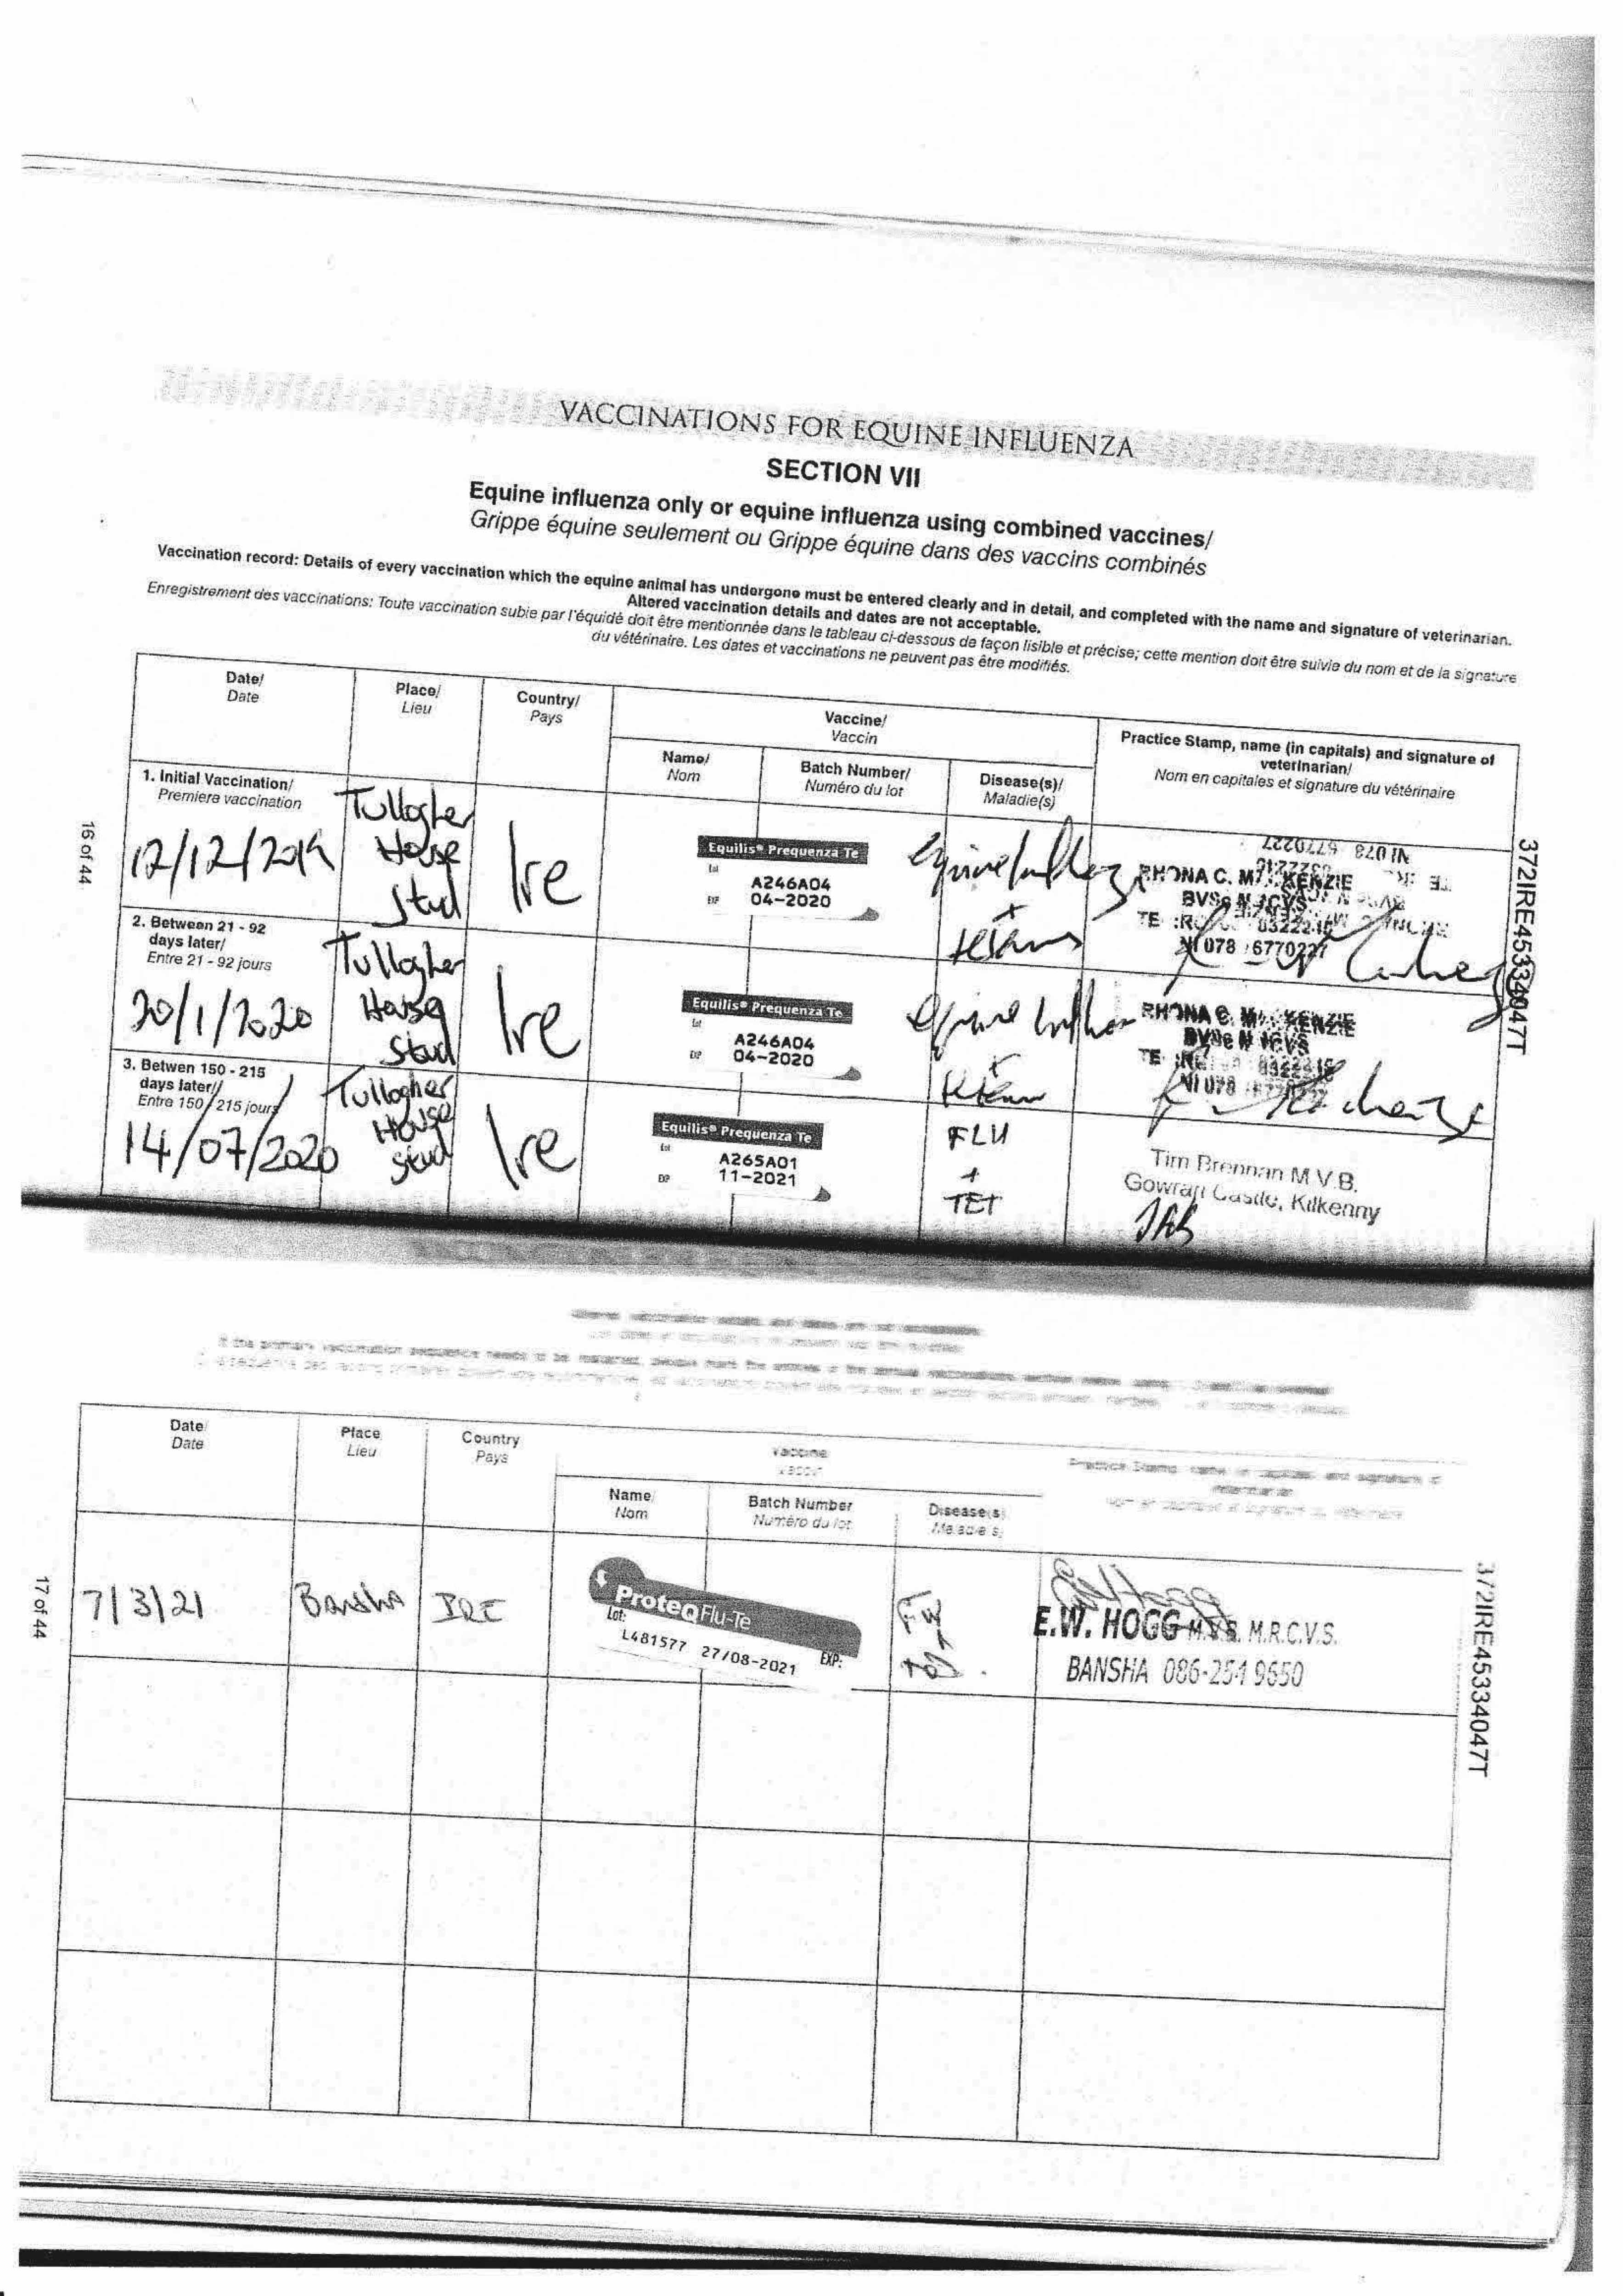 VACCINATIONS FOR EQUINE INFLUENZA
SECTION VII
Equine influenza only or equine influenza using combined vaccines/
Grippe équine seulement ou Grippe équine dans des vaccins combinés
Vaccination record: Details of every vaccination which the equine animal has undergone must be entered clearly and in detail, and completed with the name and signature of veterinarian.
Altered vaccination details and dates are not acceptable.
Enregistrement des vaccinations: Toute vaccination subie par l'équidé doit être mentionnée dans le tableau ci-dessous de façon lisible et précise; cette mention doit être suivie du nom et de la signature
du vétérinaire. Les dates et vaccinations ne peuvent pas être modifiés.
Date/
Date
Place/
Lieu
Country/
Pays
Vaccine/
Vaccin
Name/
Nom
Batch Number/
Numéro du lot
Disease(s)/
Maladie(s)
Practice Stamp, name (in capitals) and signature of
veterinarian/
Nom en capitales et signature du vétérinaire
1. Initial Vaccination/
Premiere vaccination
12/12/2019
Tullogher
House
Stud
Ire
Equilis® Prequenza Te
Lot
A246A04
EXP 04-2020
+
RHONA C.
TE
2. Between 21 - 92
days later/
Entre 21 - 92 jours
20/1/2020
Tullogher
House
Stud
Ire
Equilis® Prequenza Te
Lot
A246A04
EXP 04-2020
+
RHONA C.
3. Betwen 150 - 215
days later//
Entre 150 / 215 jours
14/07/2020
Tullogher
House
Stud
Ire
Equilis® Prequenza Te
Lot
A265A01
EXP 11-2021
FLU
+
TET
Tim Brennan M.V.B.
Gowran Castle, Kilkenny
16 of 44
372IRE45334047T
Date/
Date
Place
Lieu
Country
Pays
Vaccine
Name/
Nom
Batch Number
Numéro du lot
Disease(s)
Maladie(s)
7/3/21
Bansha
IRE
ProteqFlu-Te
Lot:
L481577 27/08-2021
EXP:
E.W. HOGG M.V.B. M.R.C.V.S.
BANSHA 086-251 9650
17 of 44
372IRE45334047T